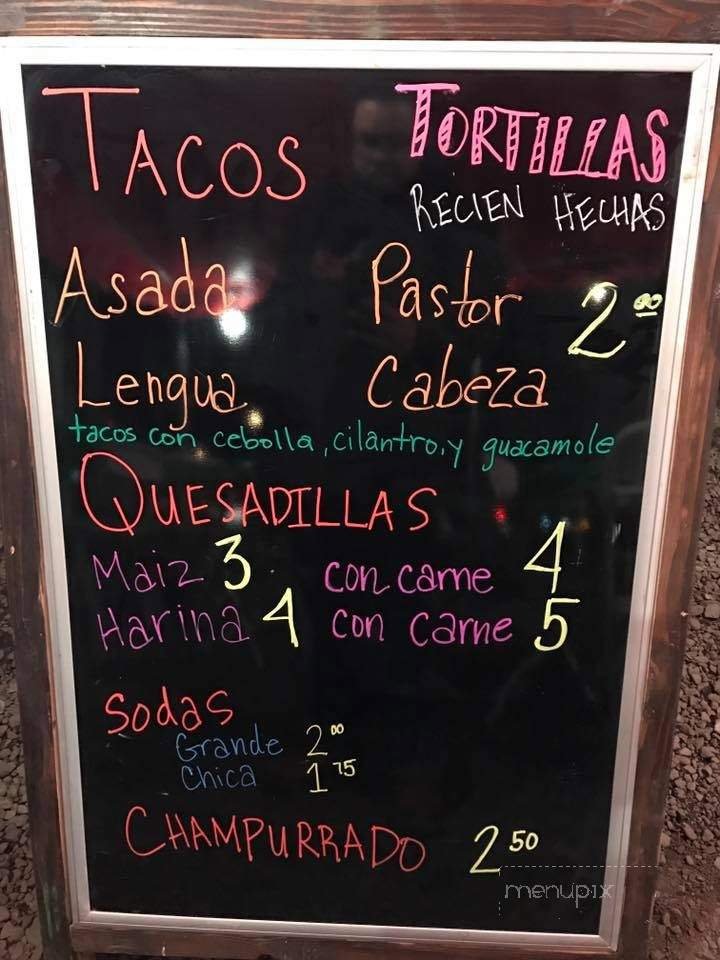 TACOS
TORTILLAS
RECIEN HECHAS
Asada Pastor 2.00
Lengua Cabeza
tacos con cebolla, cilantro, y guacamole
QUESADILLAS
Maiz 3 con carne 4
Harina 4 con carne 5
Sodas
Grande 2 00
Chica 1 75
CHAMPURRADO 2 50
menupix